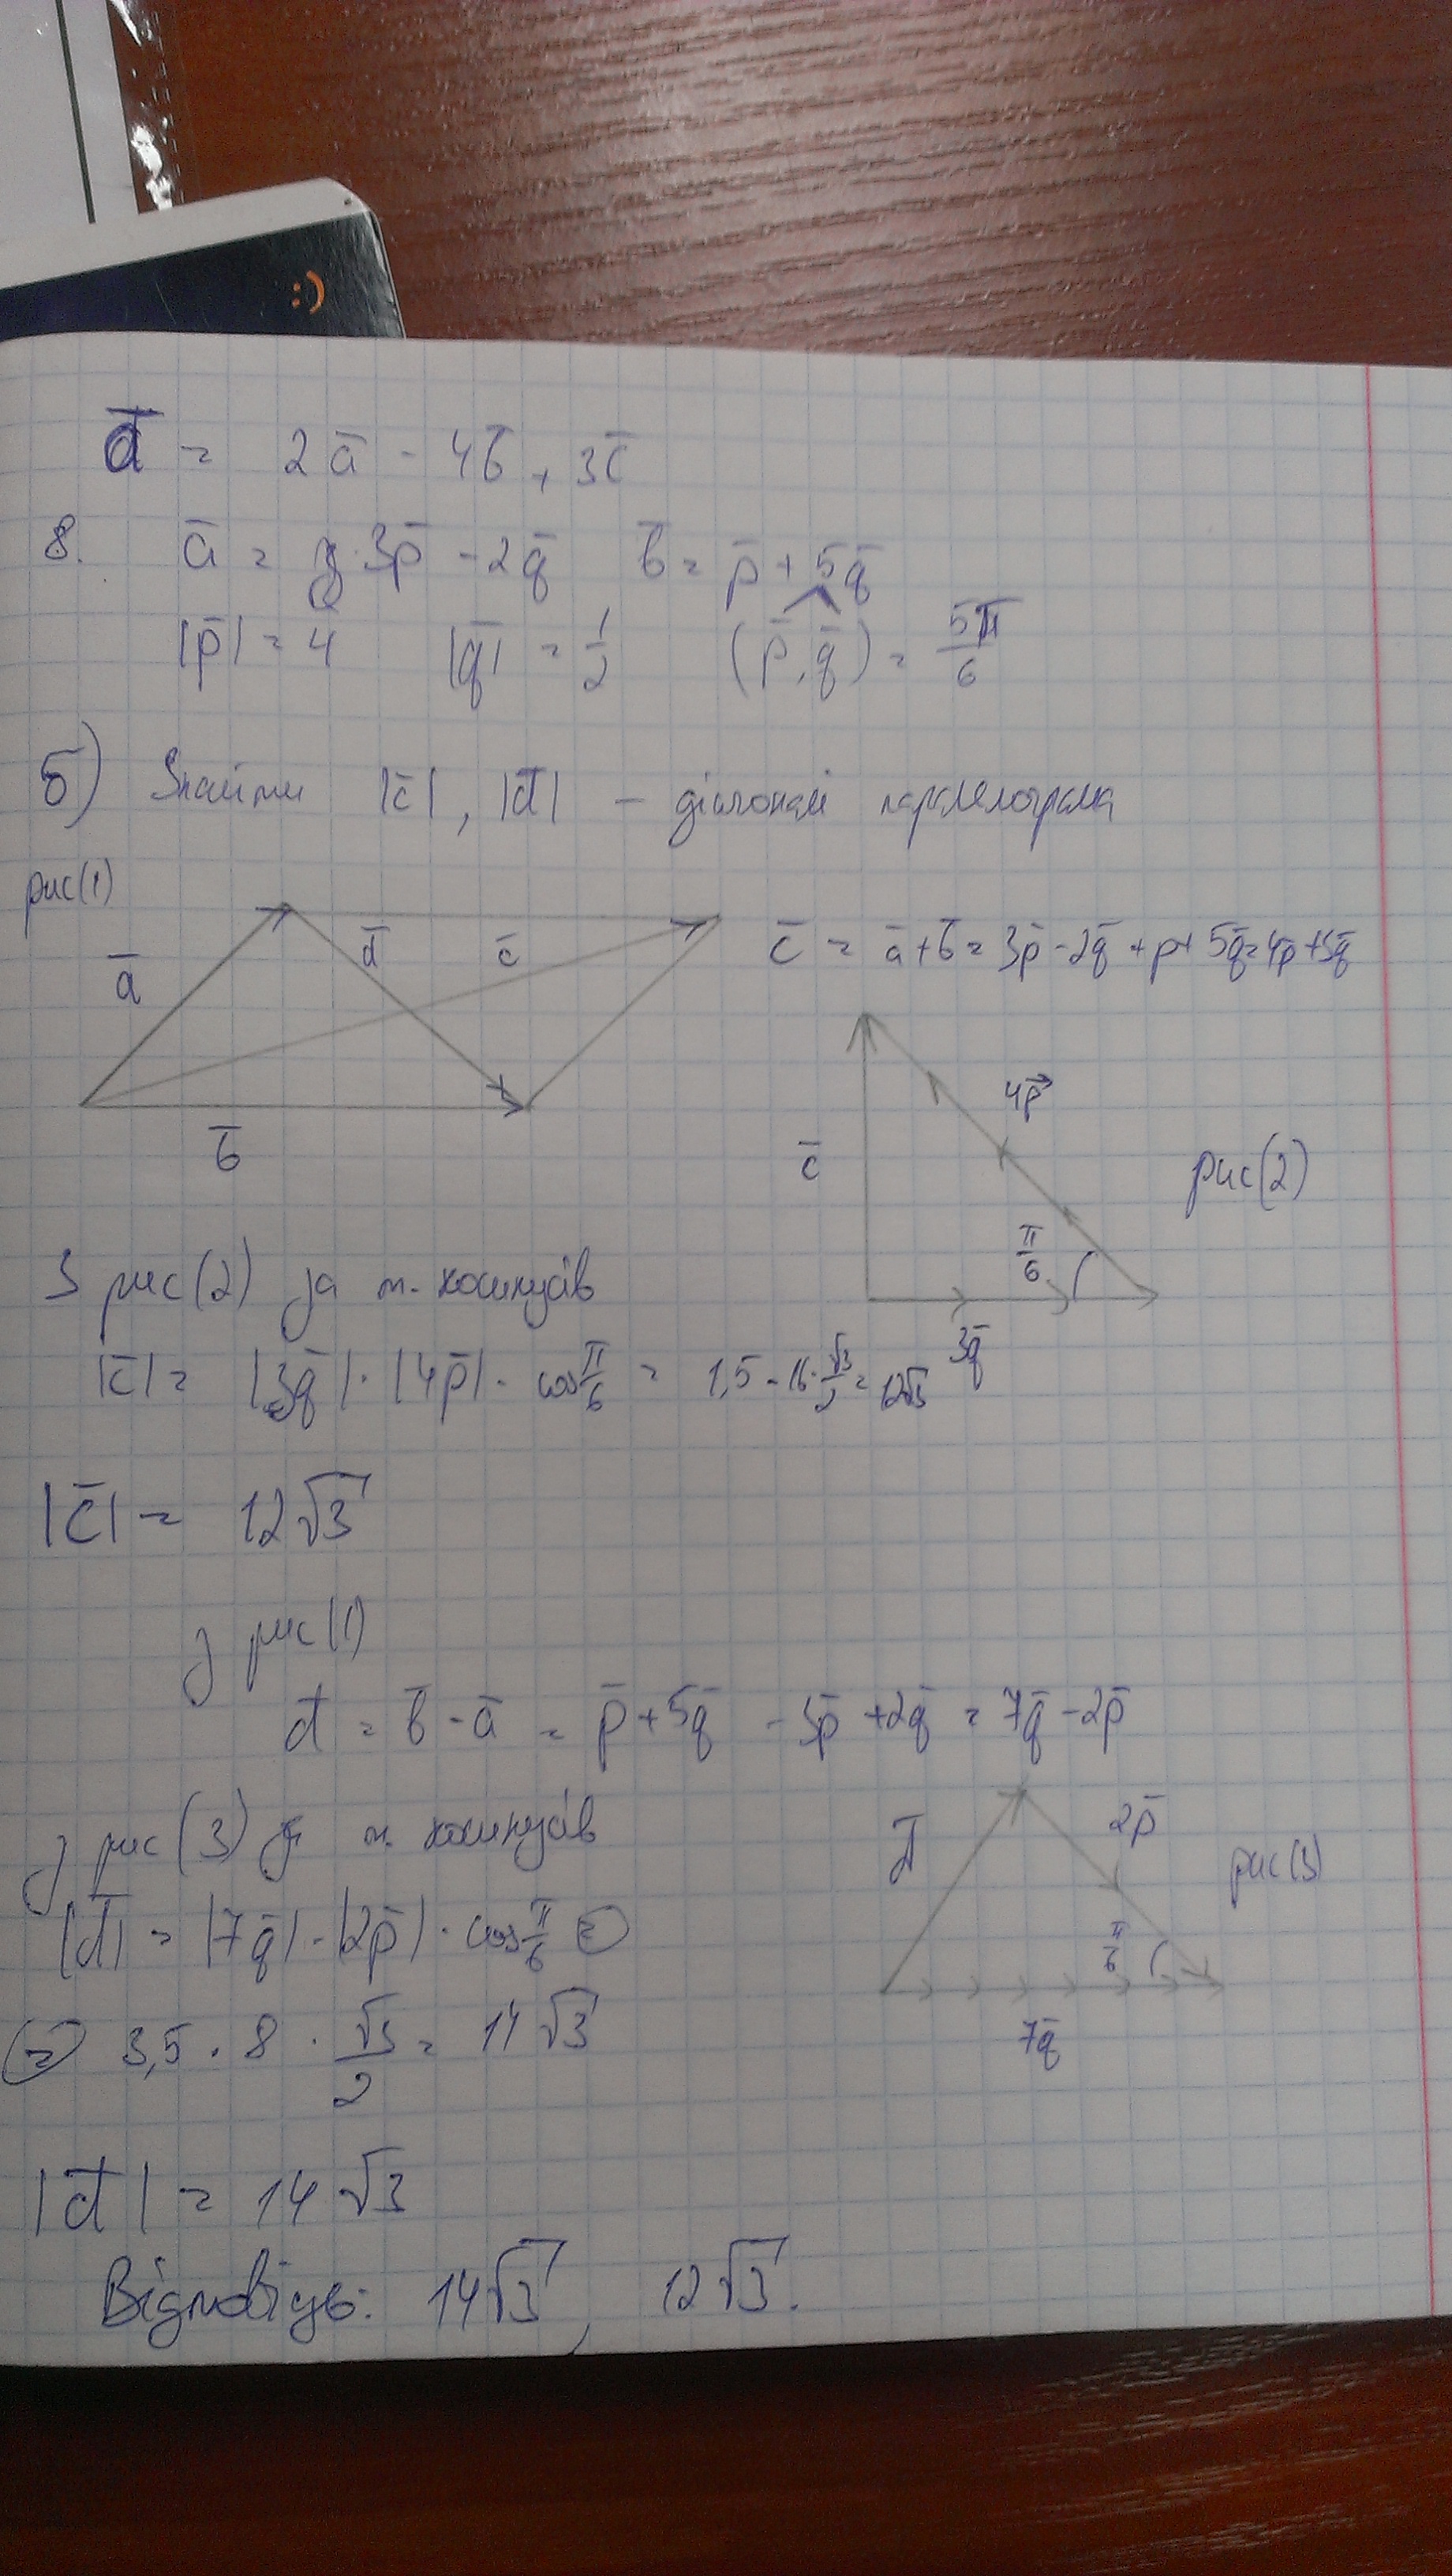 :)
d̄ = 2ā - 4b̄ + 3c̄
8. ā = 3p̄ - 2q̄ b̄ = p̄ + 5q̄
|p̄| = 4 |q̄| = 1/2 (p̄, q̄) = 5π/6
б) Знайти |c̄|, |d̄| - діагоналі паралелограма
рис(1)
ā d̄ c̄
b̄
c̄ = ā + b̄ = 3p̄ - 2q̄ + p + 5q̄ = 4p̄ + 3q̄
4p⃗
c̄
рис(2)
π/6
3q̄
З рис(2) за т. косинусів
|c̄| = |3q̄| · |4p̄| · cos π/6 = 1,5 · 16 · √3/2 = 12√3
|c̄| = 12√3
з рис(1)
d̄ = b̄ - ā = p̄ + 5q̄ - 3p̄ + 2q̄ = 7q̄ - 2p̄
з рис(3) за т. косинусів
d̄ 2p̄ рис(3)
π/6
7q̄
|d̄| = |7q̄| · |2p̄| · cos π/6 =
= 3,5 · 8 · √3/2 = 14√3
|d̄| = 14√3
Відповідь: 14√3, 12√3.